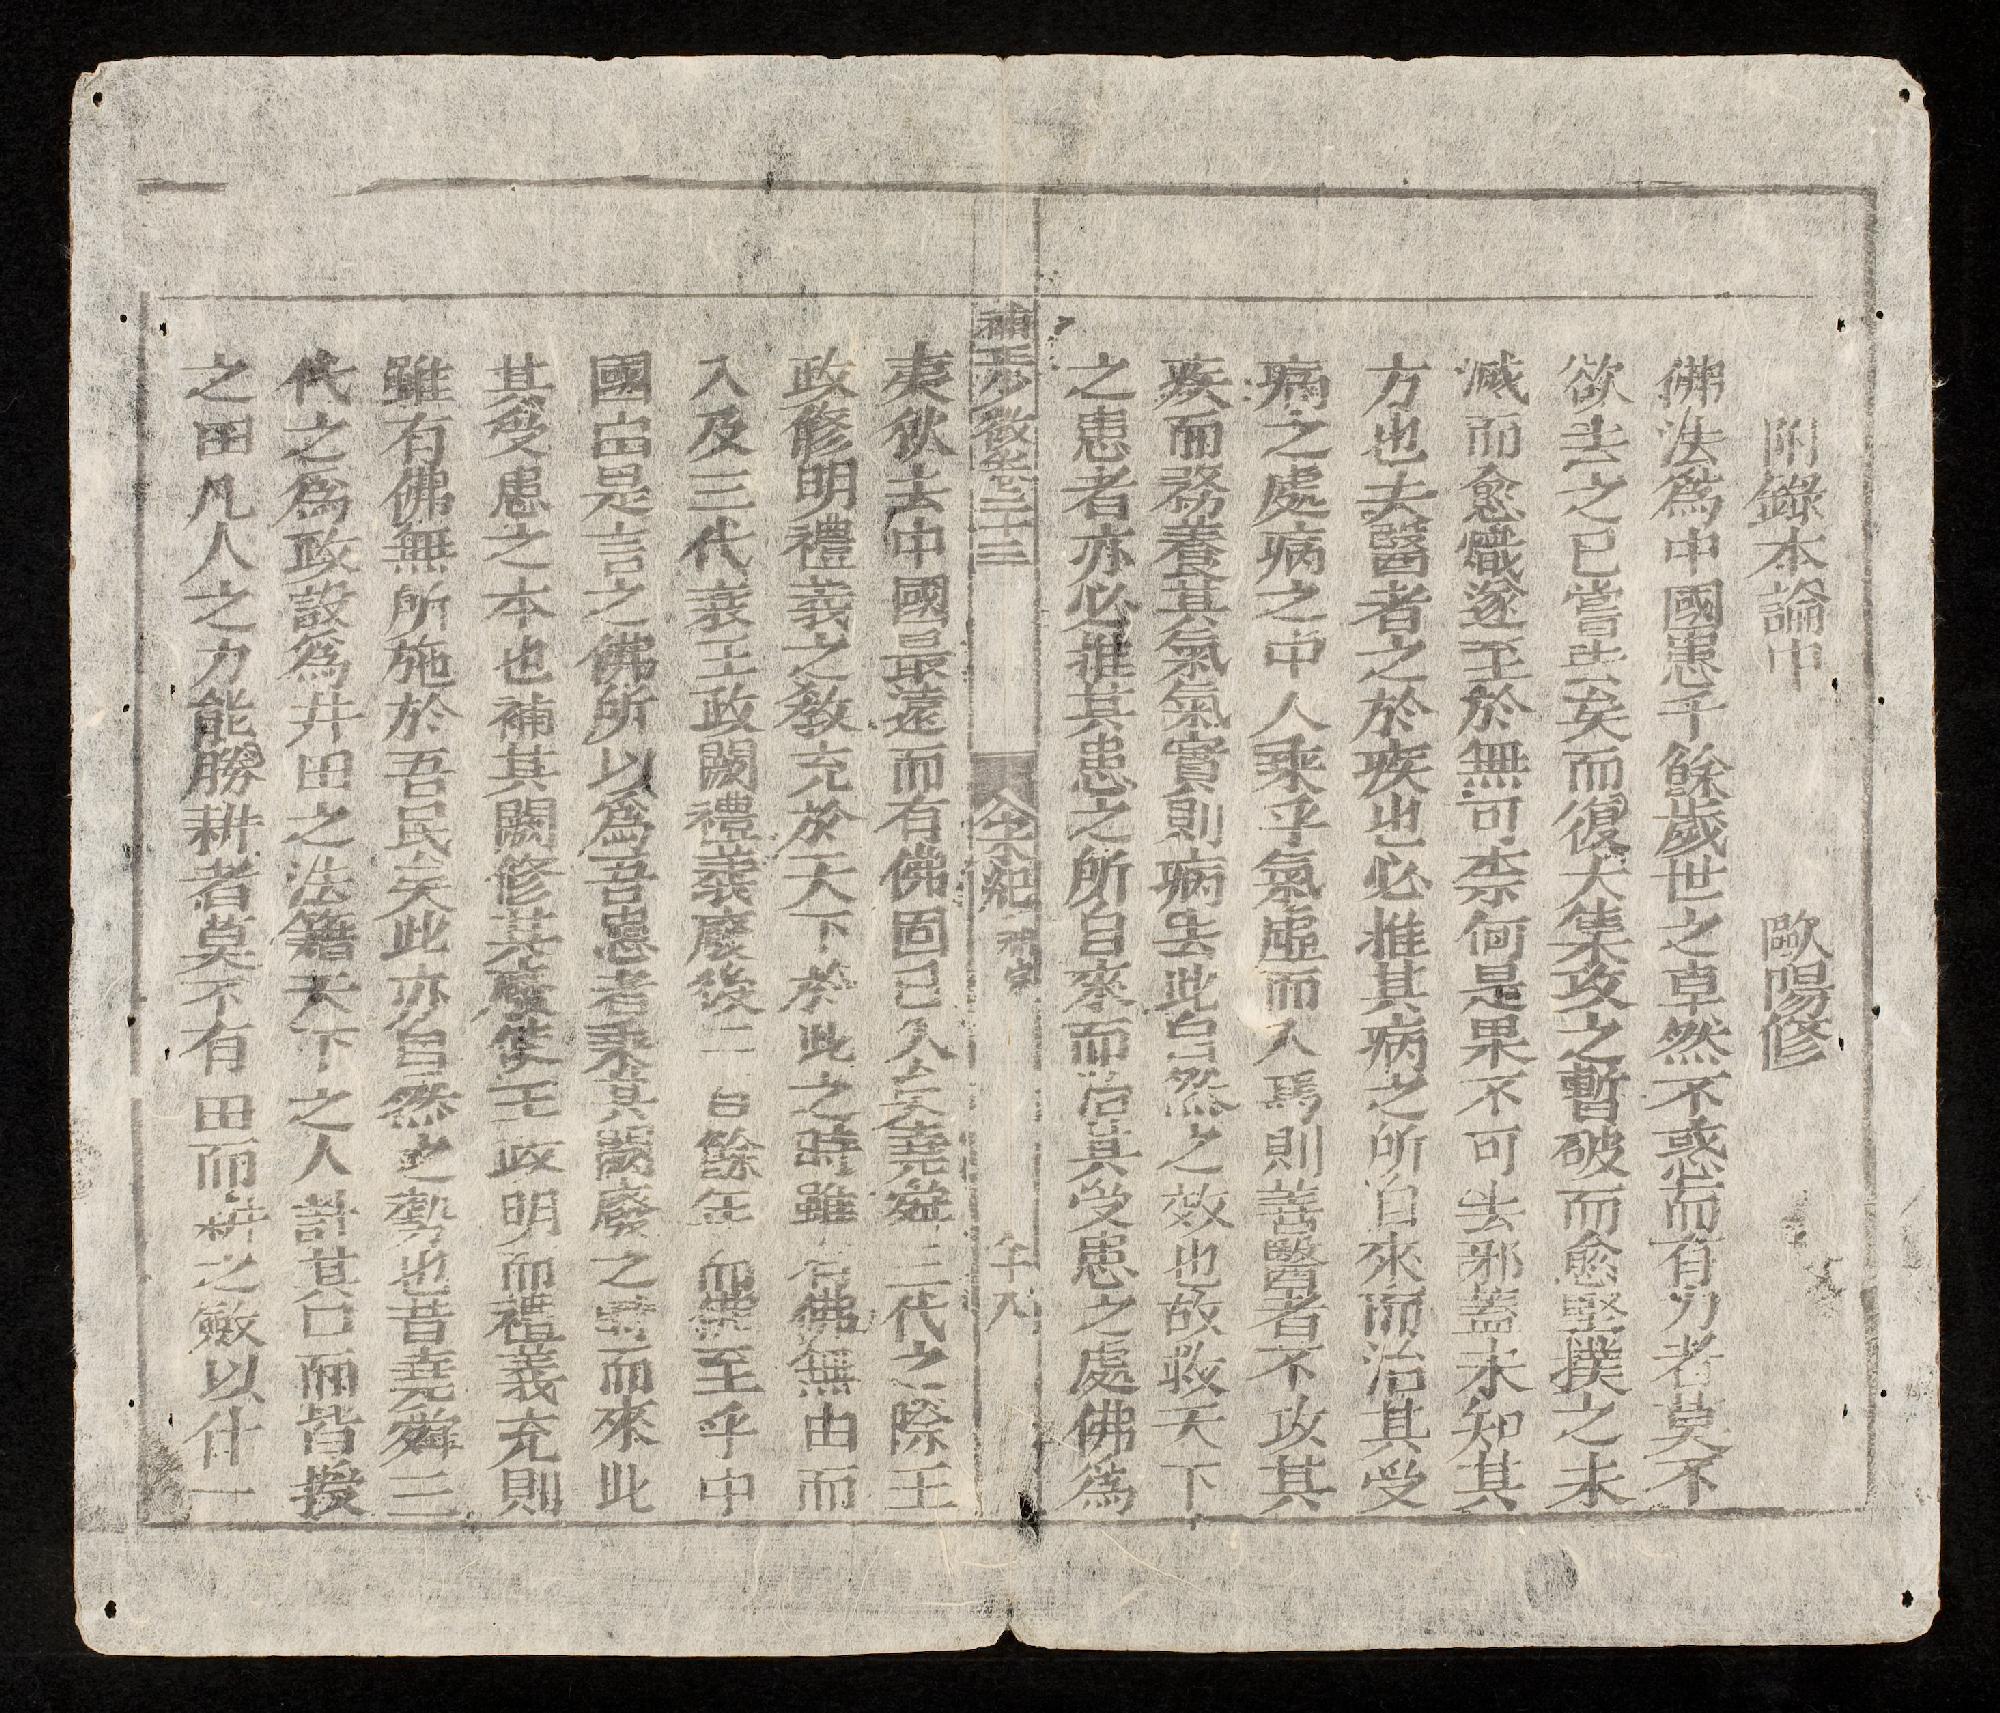 附錄本論中　歐陽修
佛法爲中國患千餘歲世之卓然不惑而有力者莫不
欲去之已嘗去矣而復大集攻之暫破而愈堅撲之未
滅而愈熾遂至於無可柰何是果不可去邪蓋未知其
方也夫醫者之於疾也必推其病之所自來而治其受
病之處病之中人乘乎氣虛而入焉則善醫者不攻其
疾而務養其氣氣實則病去此自然之效也故救天下
之患者亦必推其患之所自來而治其受患之處佛爲
補正少微卷二十三
宋紀 神宗
夷狄去中國最遠而有佛固已久矣堯舜三代之際王
政修明禮義之敎充於天下於此之時雖有佛無由而
入及三代衰王政闕禮義廢後二百餘年而佛至乎中
國由是言之佛所以爲吾患者乘其闕廢之時而來此
其受患之本也補其闕修其廢使王政明而禮義充則
雖有佛無所施於吾民矣此亦自然之勢也昔堯舜三
代之爲政設爲井田之法籍天下之人計其口而皆授
之田凡人之力能勝耕者莫不有田而耕之斂以什一